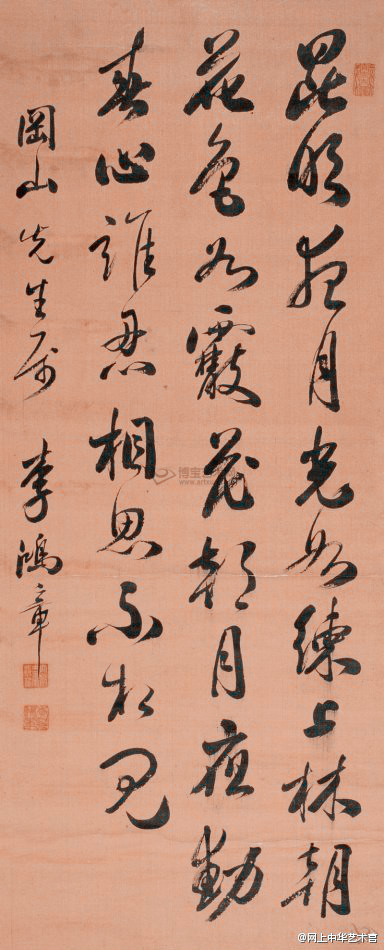 昆明夜月光如練上林朝
花色如霰花朝月夜動
春心誰忍相思不相見
岡山先生属 李鴻章
博宝
@网上中华艺术宫